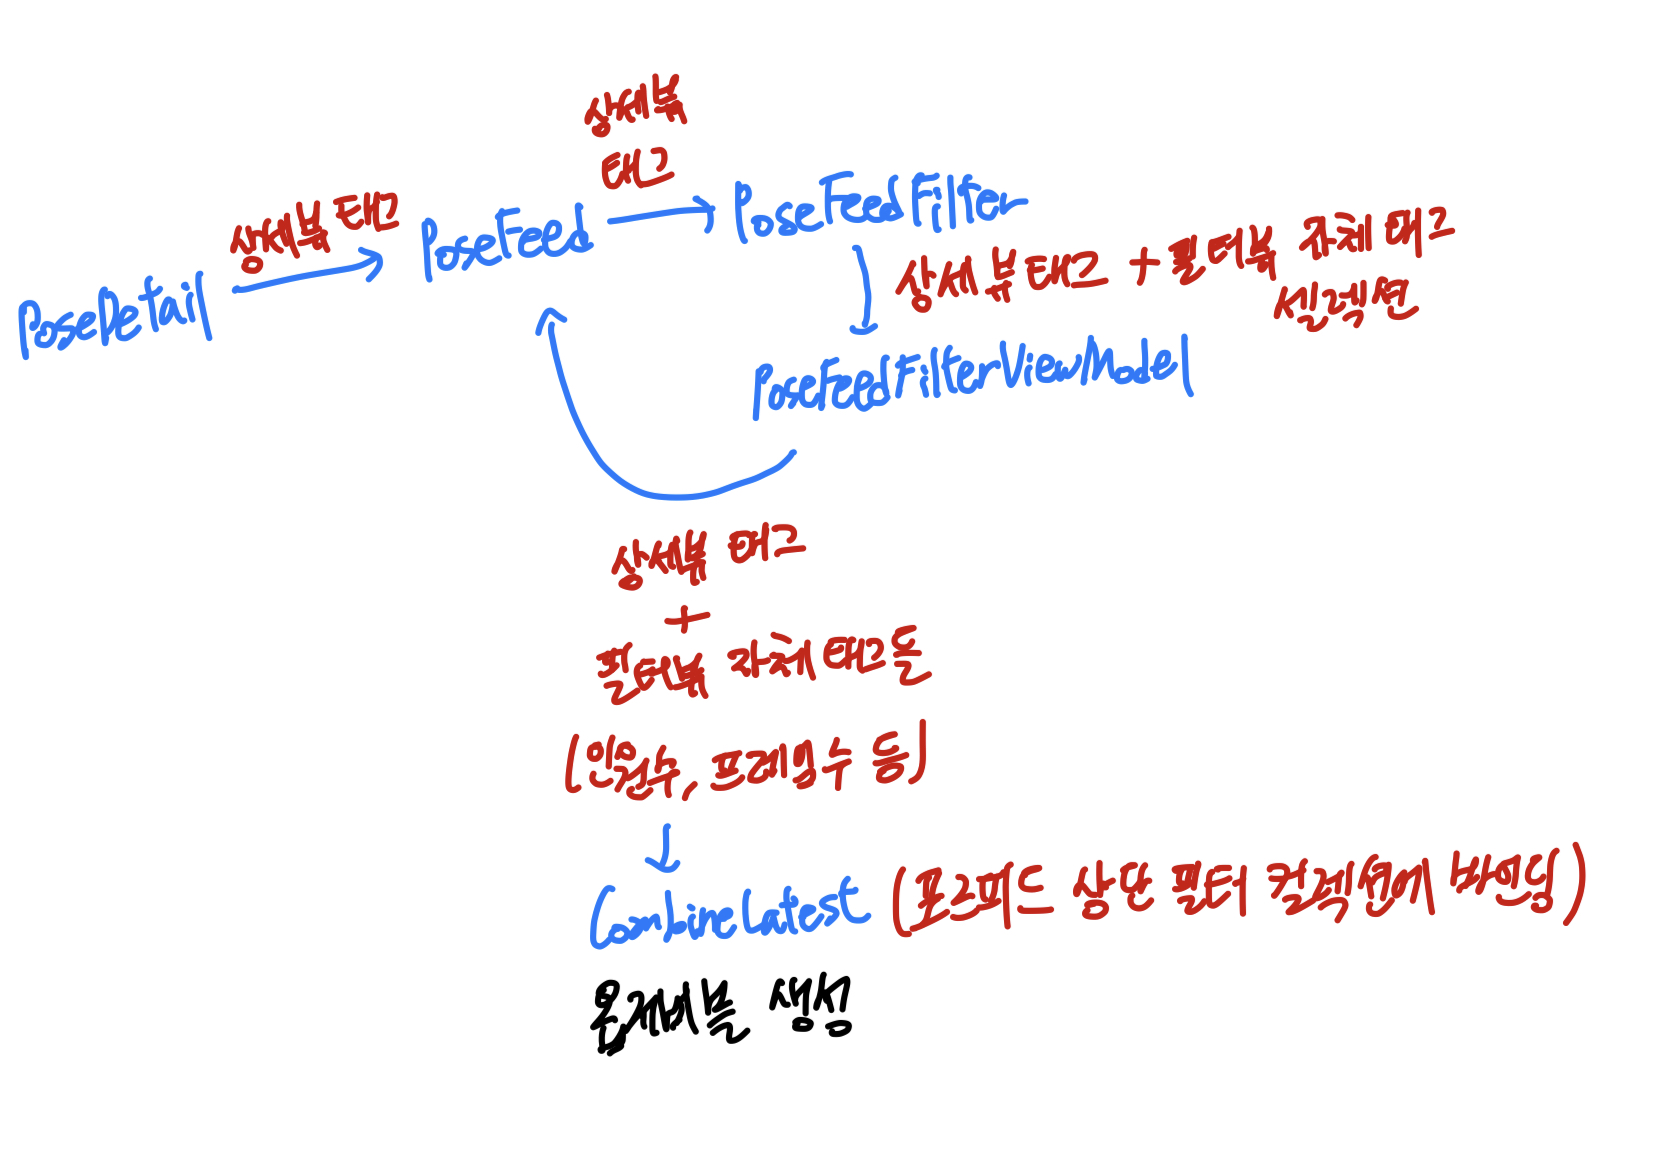 상세뷰
태그
상세뷰 태그
PoseDetail
PoseFeed
PoseFeedFilter
상세뷰태그 + 필터뷰 자체 태그
셀렉션
PoseFeedFilterViewModel
상세뷰 태그
+
필터뷰 자체 태그들
(인원수, 프레임수 등)
CombineLatest (포즈피드 상단 필터 컬렉션에 바인딩)
옵저버블 생성